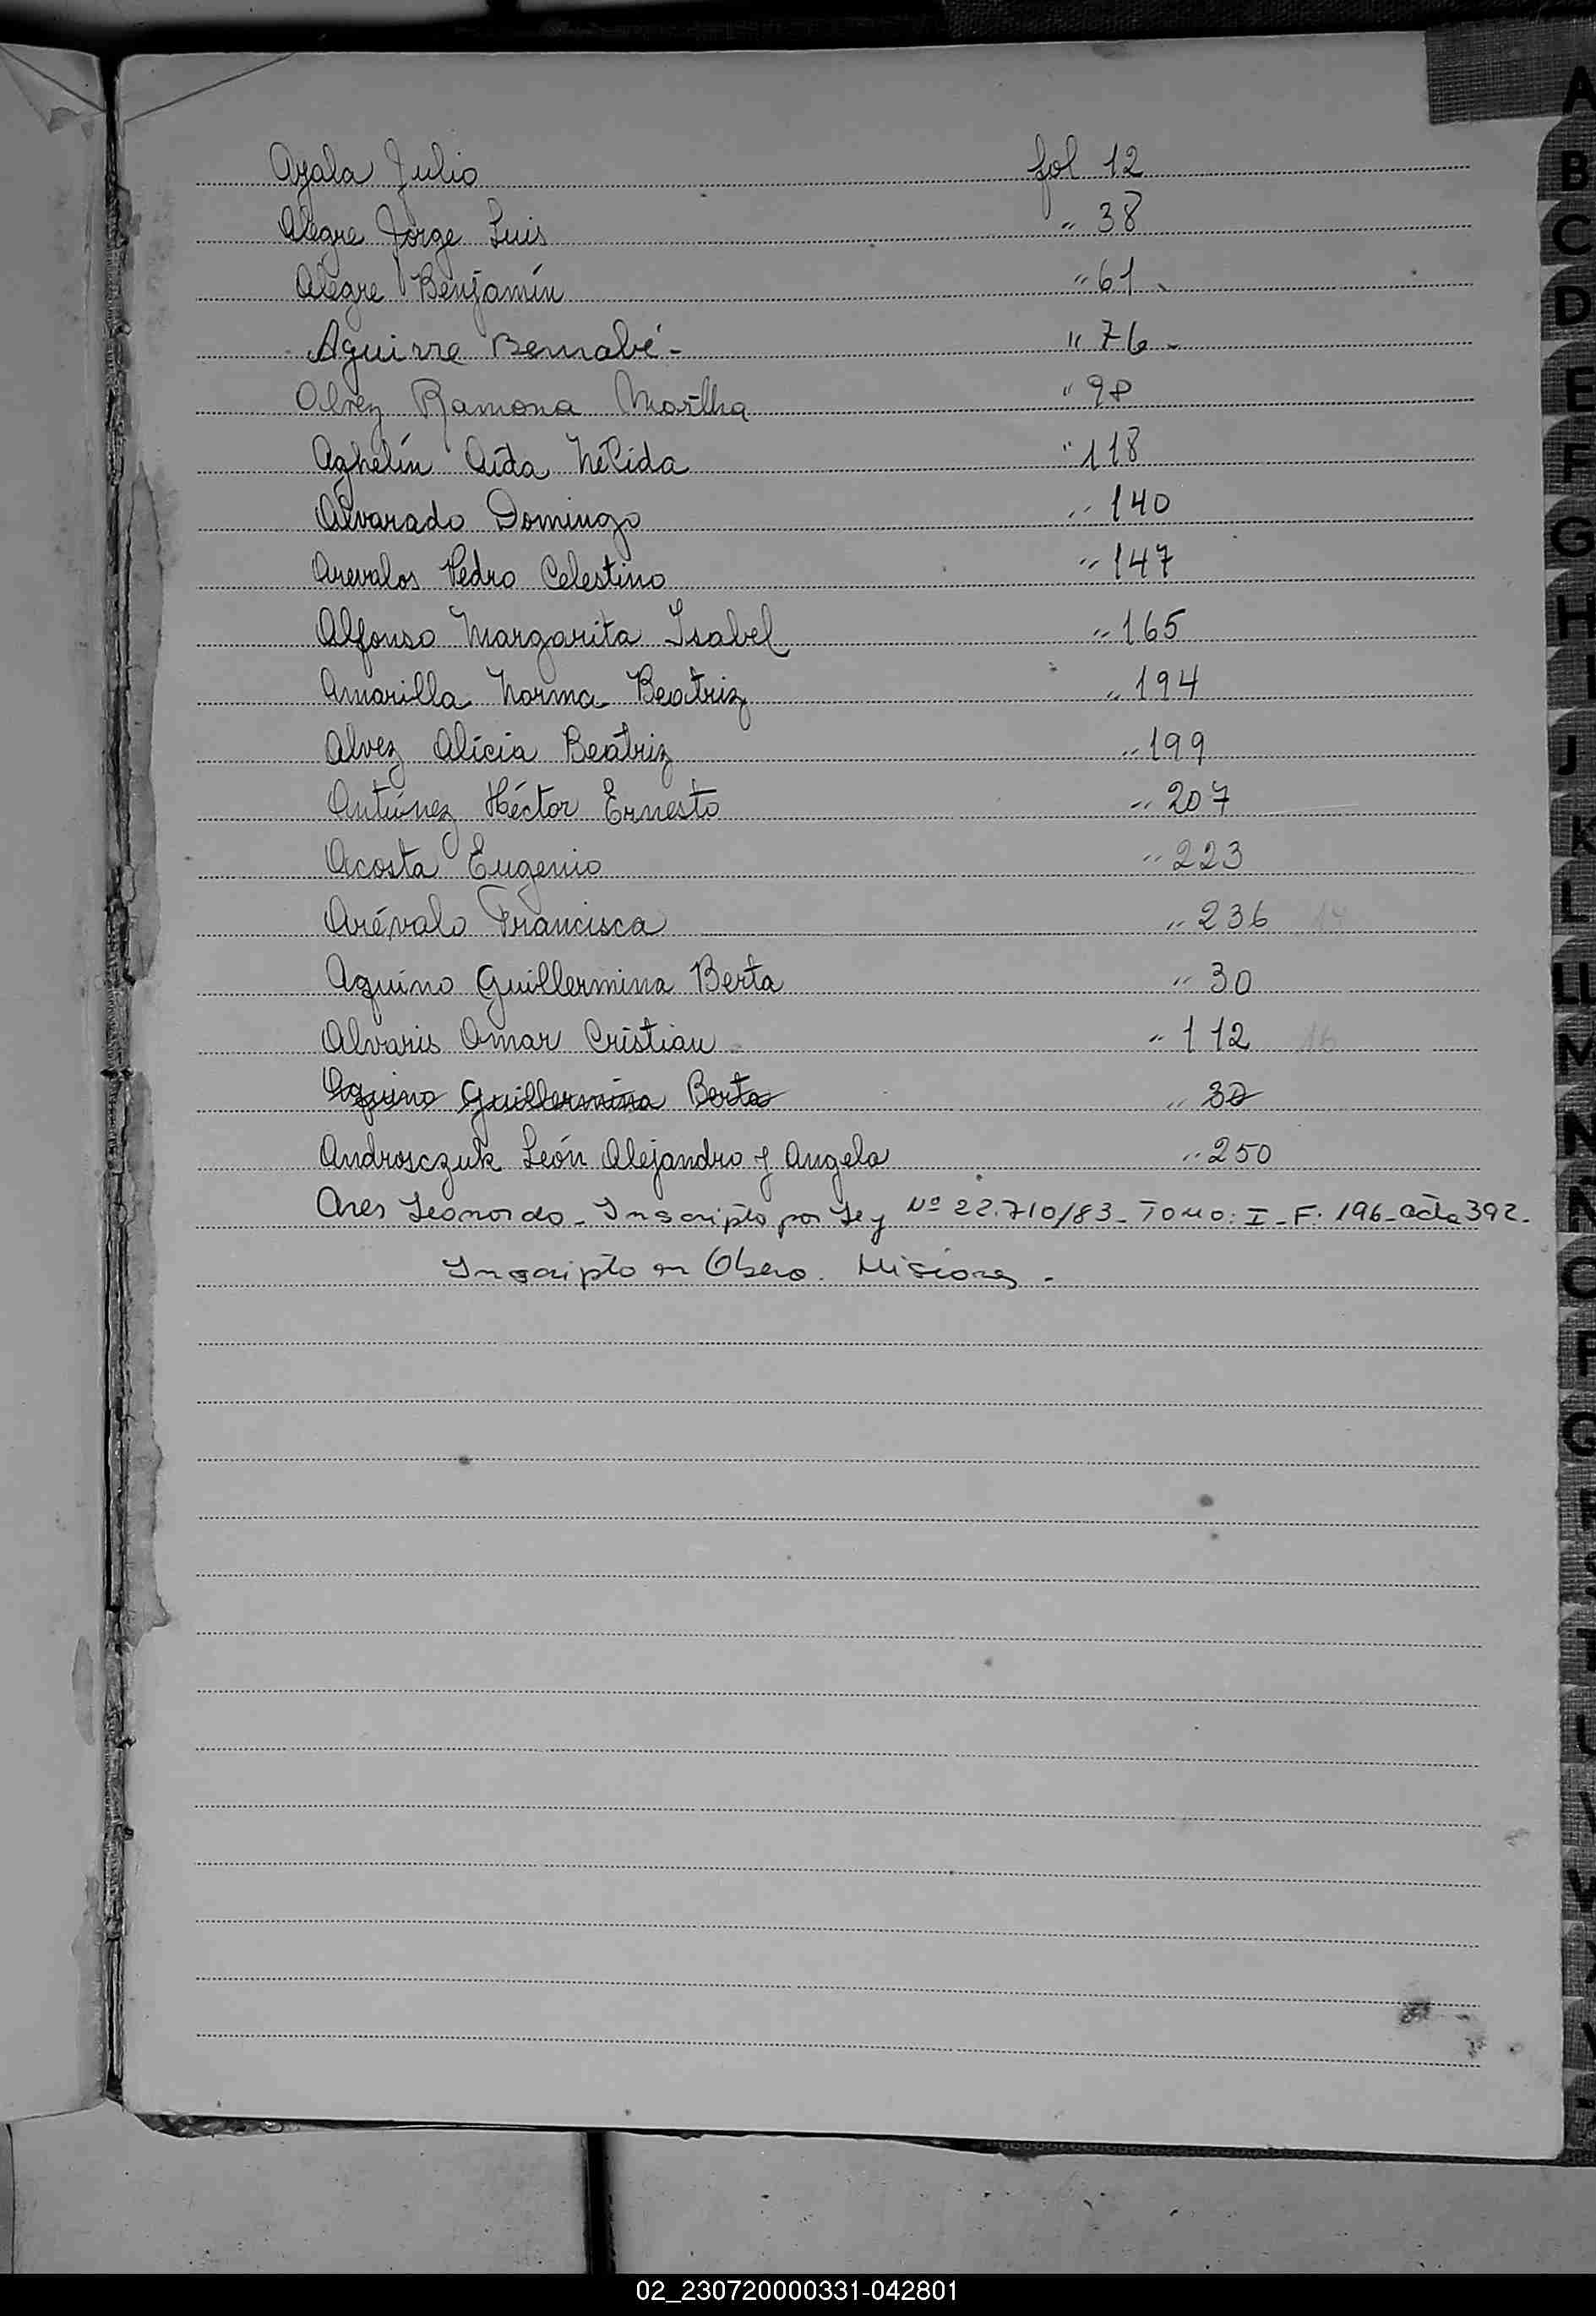 Ayala Julio fol 12
Alegre Jorge Luis " 38
Alegre Benjamín " 61 -
Aguirre Bernabé - " 76 -
Alvez Ramona Martha " 98
Aghelín Aída Nélida " 118
Alvarado Domingo " 140
Arevalos Pedro Celestino " 147
Alfonso Margarita Isabel " 165
Amarilla Norma Beatriz " 194
Alvez Alicia Beatriz " 199
Antúnez Héctor Ernesto " 207
Acosta Eugenio " 223
Arévalo Francisca " 236
Aquino Guillermina Berta " 30
Alvaris Omar Cristian " 112
Aquino Guillermina Berta " 30
Androsczuk León Alejandro y Angela " 250
Ares Leonardo - Inscripto por Ley Nº 22.710/83 - Tomo: I - F. 196 - acta 392 -
Inscripto en Obera. Misiones -
A
B
C
D
E
F
G
H
I
J
K
L
LL
M
N
Ñ
O
P
Q
02_230720000331-042801